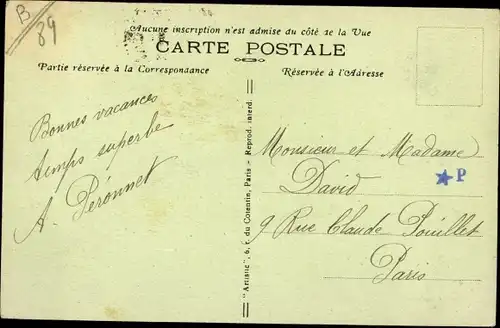 B
89
Aucune inscription n'est admise du côté de la Vue
CARTE POSTALE
Partie réservée à la Correspondance
Réservée à l'Adresse
Bonnes vacances
temps superbe
A. Péronnet
"Artistic", 6, r. du Cotentin, Paris - Reprod. interd.
Monsieur et Madame
David
9 Rue Claude Pouillet
Paris
P